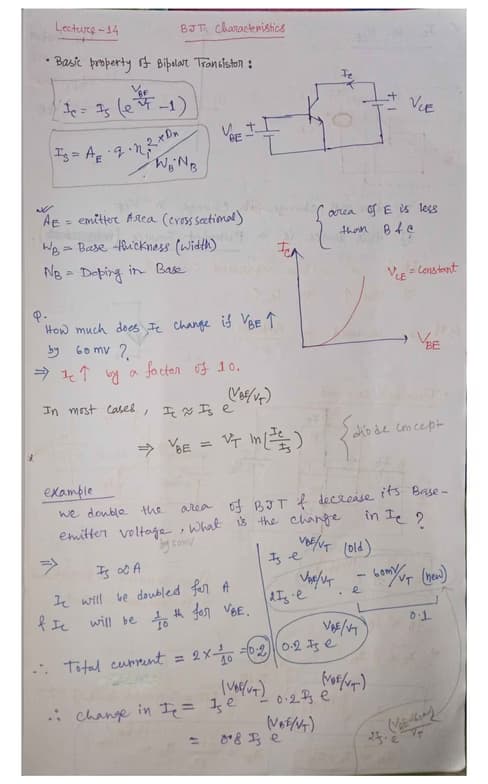 Lecture-14
BJT Characteristics
• Basic property of Bipolar Transistor :
I_c = I_s (e^(V_BE/V_T) -1)
I_s = A_E · q · n_i^2 × D_n / W_B · N_B
I_c
V_BE
V_CE
A_E = emitter Area (cross sectional)
W_B = Base thickness (width)
N_B = Doping in Base
{ area of E is less
than B & C
I_C
V_CE = constant
V_BE
Q.
How much does I_c change if V_BE ↑
by 60 mV ?
⇒ I_c ↑ by a factor of 10.
In most cases, I_c ≈ I_s e^(V_BE/V_T)
⇒ V_BE = V_T ln(I_c/I_s)
{ diode concept
example
we double the area of BJT & decrease its Base-
emitter voltage, what is the change in I_c ?
by 60mV
⇒ I_s ∝ A
I_c will be doubled for A
& I_c will be 1/10 th for V_BE.
∴ Total current = 2 × 1/10 = 0.2
I_s e^(V_BE/V_T) (old)
2I_s · e^(V_BE/V_T) · e^(-60mV/V_T) (new)
0.1
0.2 I_s e^(V_BE/V_T)
∴ change in I_c = I_s e^(V_BE/V_T) - 0.2 I_s e^(V_BE/V_T)
= 0.8 I_s e^(V_BE/V_T)